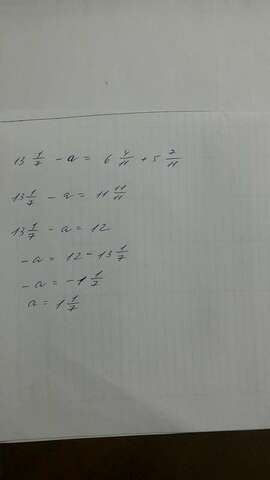 13 1/7 - a = 6 4/11 + 5 7/11
13 1/7 - a = 11 11/11
13 1/7 - a = 12
-a = 12 - 13 1/7
-a = -1 1/7
a = 1 1/7